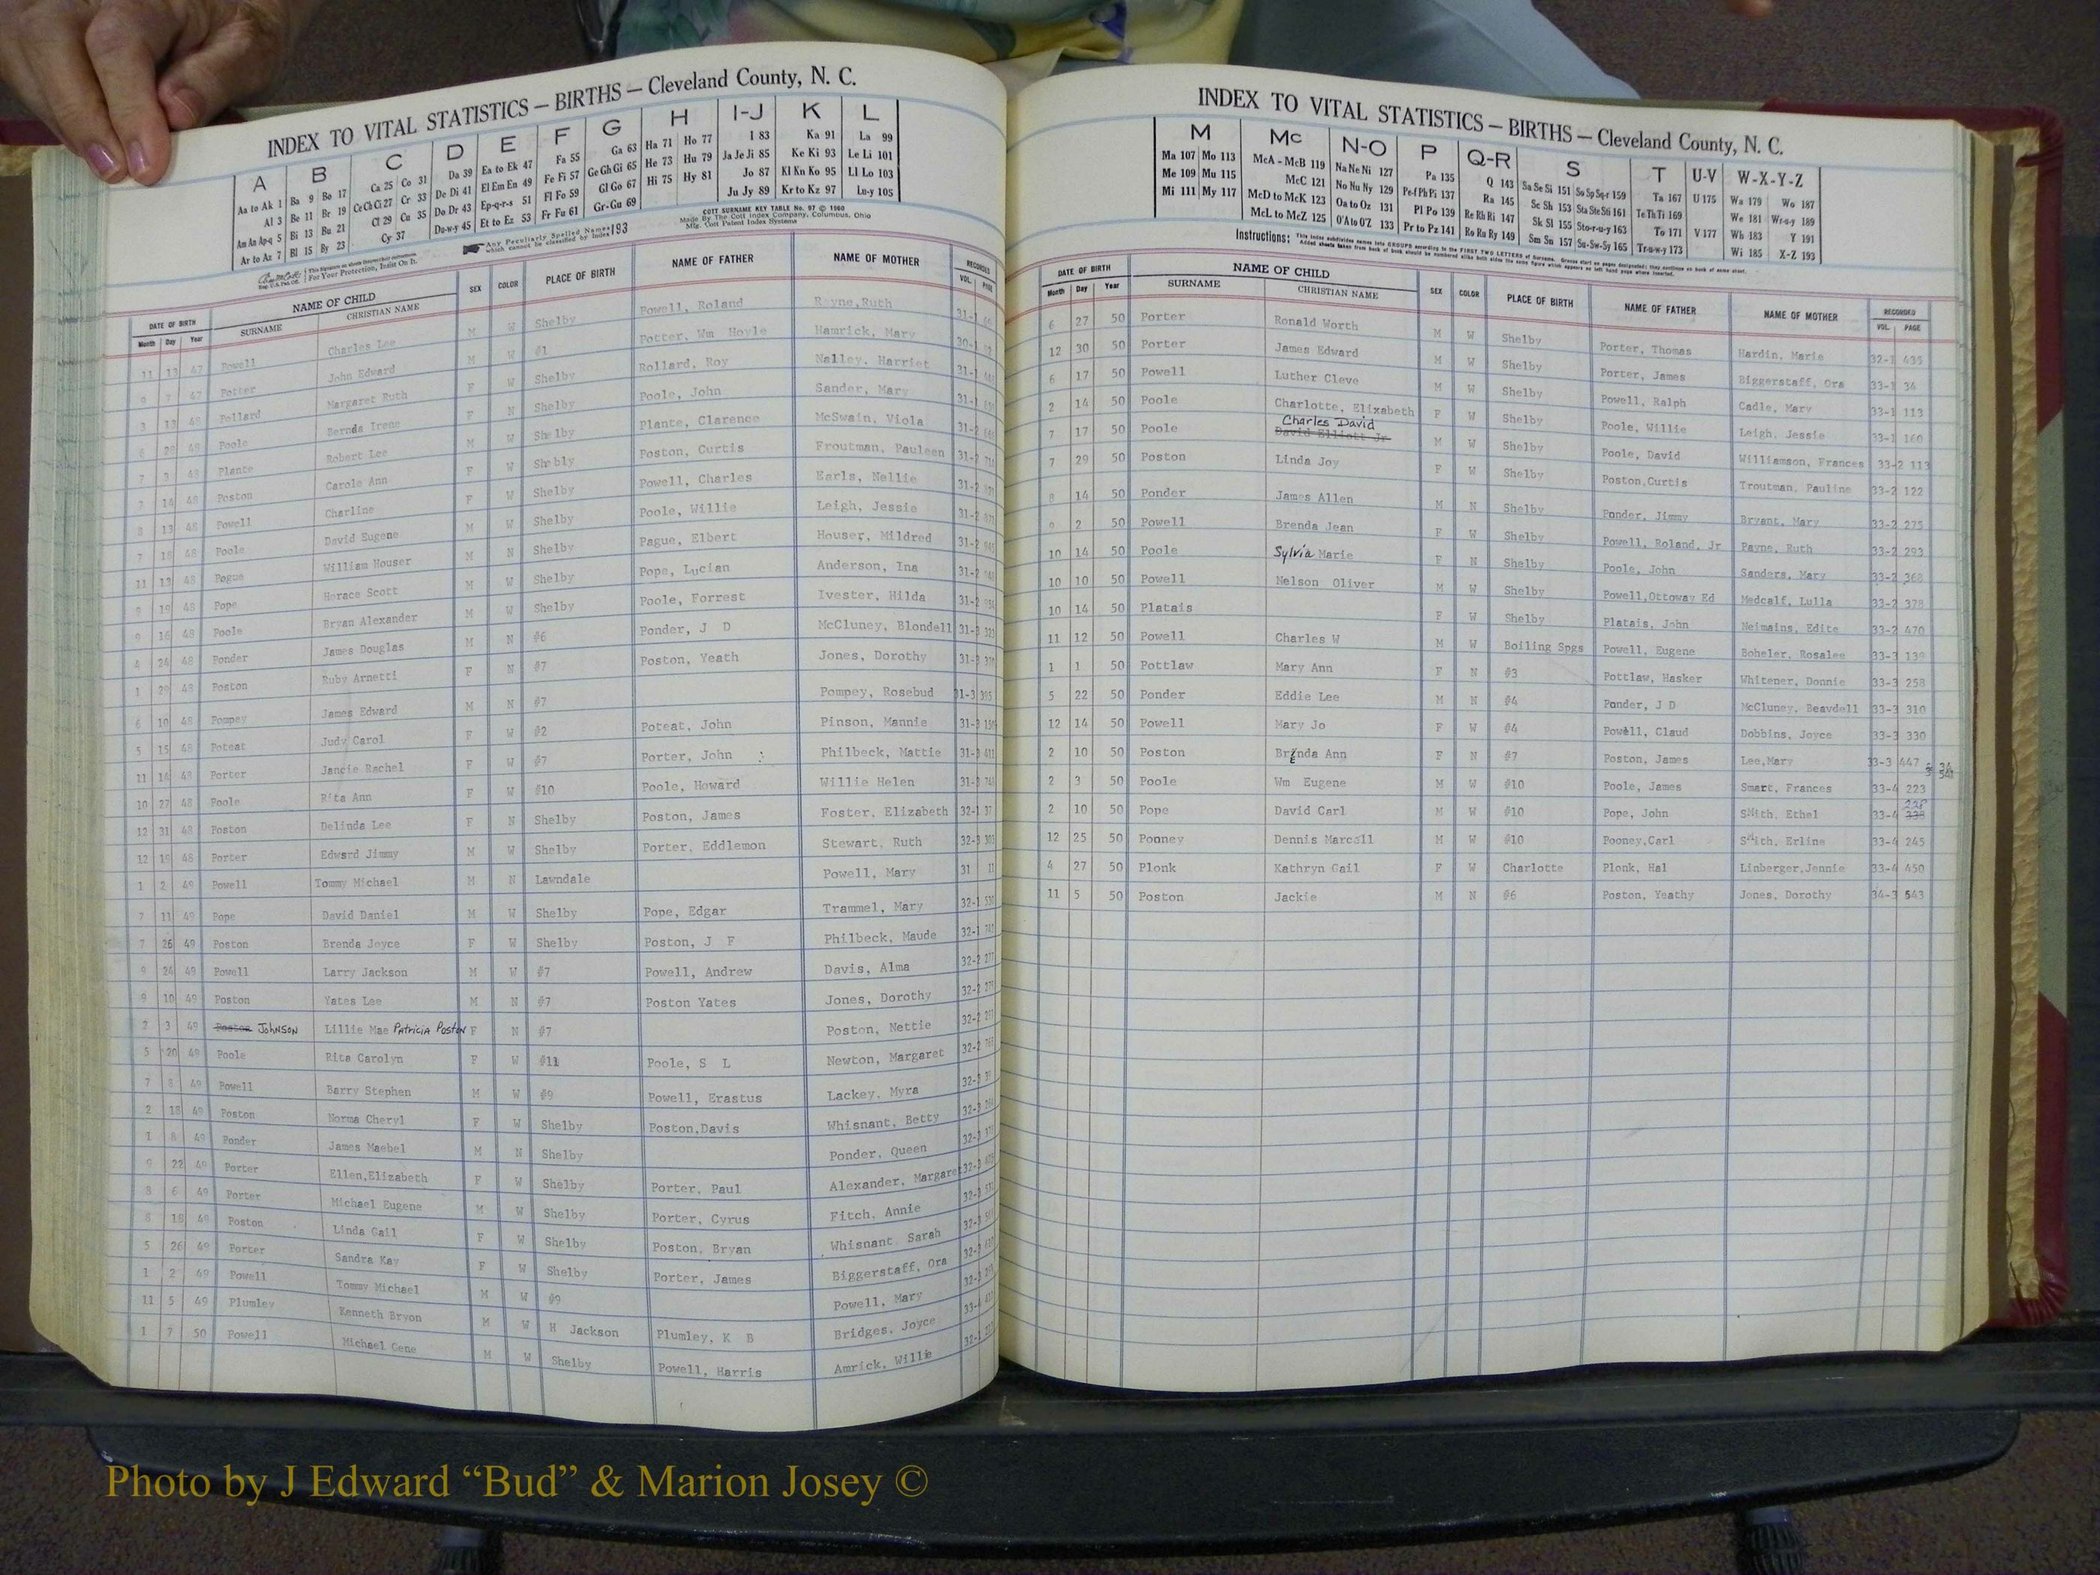 INDEX TO VITAL STATISTICS — BIRTHS — Cleveland County, N. C.
A B C D E F G H I-J K L
Aa to Ak 1 Ba 9 Bo 17 Ca 25 Co 31 Da 39 Ea to Ek 47 Fa 55 Ga 63 Ha 71 Ho 77 I 83 Ka 91 La 99
Al 3 Be 11 Br 19 Ce Ch Ci 27 Cr 33 De Di 41 El Em En 49 Fe Fi 57 Ge Gh Gi 65 He 73 Hu 79 Ja Je Ji 85 Ke Ki 93 Le Li 101
Am An Ap-q 5 Bi 13 Bu 21 Cl 29 Cu 35 Do Dr 43 Ep-q-r-s 51 Fl Fo 59 Gl Go 67 Hi 75 Hy 81 Jo 87 Kl Kn Ko 95 Ll Lo 103
Ar to Az 7 Bl 15 By 23 Cy 37 Du-w-y 45 Et to Ez 53 Fr Fu 61 Gr-Gu 69 Ju Jy 89 Kr to Kz 97 Lu-y 105
Any Peculiarly Spelled Names which cannot be classified by Index 193
COTT SURNAME KEY TABLE No. 97 © 1960
Made By The Cott Index Company, Columbus, Ohio
Mfg. Cott Patent Index Systems
For Your Protection, Insist On It.
DATE OF BIRTH NAME OF CHILD SEX COLOR PLACE OF BIRTH NAME OF FATHER NAME OF MOTHER RECORDED
Month Day Year SURNAME CHRISTIAN NAME VOL. PAGE
11 13 47 Powell Charles Lee M W Shelby Powell, Roland Ruth 31-1
9 7 47 Potter John Edward M W #1 Potter, Wm Hoyle Hamrick, Mary 30-1
3 13 48 Pollard Margaret Ruth F W Shelby Rollard, Roy Nalley, Harriet 31-1
48 Poole Bernda Irene F N Shelby Poole, John Sander, Mary 31-1
7 9 48 Plante Robert Lee M W Shelby Plante, Clarence McSwain, Viola 31-2
7 14 48 Poston Carole Ann F W Shebly Poston, Curtis Froutman, Pauleen 31-2
8 13 48 Powell Charline F W Shelby Powell, Charles Earls, Nellie 31-2
7 18 48 Poole David Eugene M W Shelby Poole, Willie Leigh, Jessie 31-2
11 13 48 Pogue William Houser M N Shelby Pague, Elbert Houser, Mildred 31-2
9 19 48 Pope Horace Scott M W Shelby Pope, Lucian Anderson, Ina 31-2
9 16 48 Poole Bryan Alexander M W Shelby Poole, Forrest Ivester, Hilda 31-2
4 24 48 Ponder James Douglas M N #6 Ponder, J D McCluney, Blondell 31-3 323
1 29 48 Poston Ruby Arnetti F N #7 Poston, Yeath Jones, Dorothy 31-3
6 10 48 Pompey James Edward M N #7 Pompey, Rosebud 31-3 395
5 15 48 Poteat Judy Carol F W #2 Poteat, John Pinson, Mannie 31-3
11 14 48 Porter Jancie Rachel F W #7 Porter, John Philbeck, Mattie 31-3 411
10 27 48 Poole Rita Ann F W #10 Poole, Howard Willie Helen 31-3
12 31 48 Poston Delinda Lee F N Shelby Poston, James Foster, Elizabeth 32-1 37
12 19 48 Porter Edward Jimmy M W Shelby Porter, Eddlemon Stewart, Ruth 32-3 303
1 2 49 Powell Tommy Michael M N Lawndale Powell, Mary 31 11
7 11 49 Pope David Daniel M W Shelby Pope, Edgar Trammel, Mary 32-1 530
7 26 49 Poston Brenda Joyce F W Shelby Poston, J F Philbeck, Maude 32-1
9 24 49 Powell Larry Jackson M W #7 Powell, Andrew Davis, Alma 32-2 277
9 10 49 Poston Yates Lee M N #7 Poston Yates Jones, Dorothy 32-2
2 3 49 Poston Johnson Lillie Mae Patricia Poston F N #7 Poston, Nettie 32-2
5 20 49 Poole Rita Carolyn F W #11 Poole, S L Newton, Margaret 32-2
7 8 49 Powell Barry Stephen M W #9 Powell, Erastus Lackey, Myra 32-3
2 18 49 Poston Norma Cheryl F W Shelby Poston,Davis Whisnant, Betty 32-3
1 8 49 Ponder James Maebel M N Shelby Ponder, Queen 32-3
9 22 49 Porter Ellen,Elizabeth F W Shelby Porter, Paul Alexander, Margaret 32-3
8 6 49 Porter Michael Eugene M W Shelby Porter, Cyrus Fitch, Annie 32-3
8 18 49 Poston Linda Gail F W Shelby Poston, Bryan Whisnant Sarah 32-3
5 26 49 Porter Sandra Kay F W Shelby Porter, James Biggerstaff, Ora 32-3
1 2 49 Powell Tommy Michael M W #9 Powell, Mary 32-3
11 5 49 Plumley Kenneth Bryon M W H Jackson Plumley, K B Bridges, Joyce 33-4
1 7 50 Powell Michael Gene M W Shelby Powell, Harris Amrick, Willie 32-1
INDEX TO VITAL STATISTICS — BIRTHS — Cleveland County, N. C.
M Mc N-O P Q-R S T U-V W-X-Y-Z
Ma 107 Mo 113 McA - McB 119 Na Ne Ni 127 Pa 135 Q 143 Sa Se Si 151 So Sp Sq-r 159 Ta 167 U 175 Wa 179 Wo 187
Me 109 Mu 115 McC 121 No Nu Ny 129 Pe-f Ph Pi 137 Ra 145 Sc Sh 153 Sta Ste Sti 161 Te Th Ti 169 We 181 Wr-u-y 189
Mi 111 My 117 McD to McK 123 Oa to Oz 131 Pl Po 139 Re Rh Ri 147 Sk Sl 155 Sto-r-u-y 163 To 171 V 177 Wh 183 Y 191
McL to McZ 125 O'A to O'Z 133 Pr to Pz 141 Ro Ru Ry 149 Sm Sn 157 Su-Sw-Sy 165 Tr-u-w-y 173 Wi 185 X-Z 193
Instructions: This index subdivides names into GROUPS according to the FIRST TWO LETTERS of Surname.
DATE OF BIRTH NAME OF CHILD SEX COLOR PLACE OF BIRTH NAME OF FATHER NAME OF MOTHER RECORDED
Month Day Year SURNAME CHRISTIAN NAME VOL. PAGE
6 27 50 Porter Ronald Worth M W Shelby Porter, Thomas Hardin, Marie 32-1 435
12 30 50 Porter James Edward M W Shelby Porter, James Biggerstaff, Ora 33-1 34
6 17 50 Powell Luther Cleve M W Shelby Powell, Ralph Cadle, Mary 33-1 113
2 14 50 Poole Charlotte, Elizabeth F W Shelby Poole, Willie Leigh, Jessie 33-1 160
7 17 50 Poole Charles David David Elliott Jr M W Shelby Poole, David Williamson, Frances 33-2 113
7 29 50 Poston Linda Joy F W Shelby Poston,Curtis Troutman, Pauline 33-2 122
8 14 50 Ponder James Allen M N Shelby Ponder, Jimmy Bryant, Mary 33-2 275
9 2 50 Powell Brenda Jean F W Shelby Powell, Roland, Jr Payne, Ruth 33-2 293
10 14 50 Poole Sylvia Marie F N Shelby Poole, John Sanders, Mary 33-2 368
10 10 50 Powell Nelson Oliver M W Shelby Powell,Ottoway Ed Medcalf, Lulla 33-2 378
10 14 50 Platais F W Shelby Platais, John Neimains, Edite 33-2 470
11 12 50 Powell Charles W M W Boiling Spgs Powell, Eugene Boheler, Rosalee 33-3 139
1 1 50 Pottlaw Mary Ann F N #3 Pottlaw, Hasker Whitener, Donnie 33-3 258
5 22 50 Ponder Eddie Lee M N #4 Ponder, J D McCluney, Beavdell 33-3 310
12 14 50 Powell Mary Jo F W #4 Powell, Claud Dobbins, Joyce 33-3 330
2 10 50 Poston Brenda Ann F N #7 Poston, James Lee,Mary 33-3 447
2 3 50 Poole Wm Eugene M W #10 Poole, James Smart, Frances 33-4 223
2 10 50 Pope David Carl M W #10 Pope, John Smith, Ethel 33-4 238
12 25 50 Ponney Dennis Marcell M W #10 Pooney,Carl Smith, Erline 33-4 245
4 27 50 Plonk Kathryn Gail F W Charlotte Plonk, Hal Linberger,Jennie 33-4 450
11 5 50 Poston Jackie M N #6 Poston, Yeathy Jones, Dorothy 34-3 543
Photo by J Edward “Bud” & Marion Josey ©